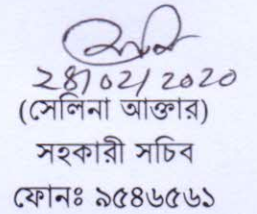 28/02/2020
(সেলিনা আক্তার)
সহকারী সচিব
ফোনঃ ৯৫৪৬৫৬১